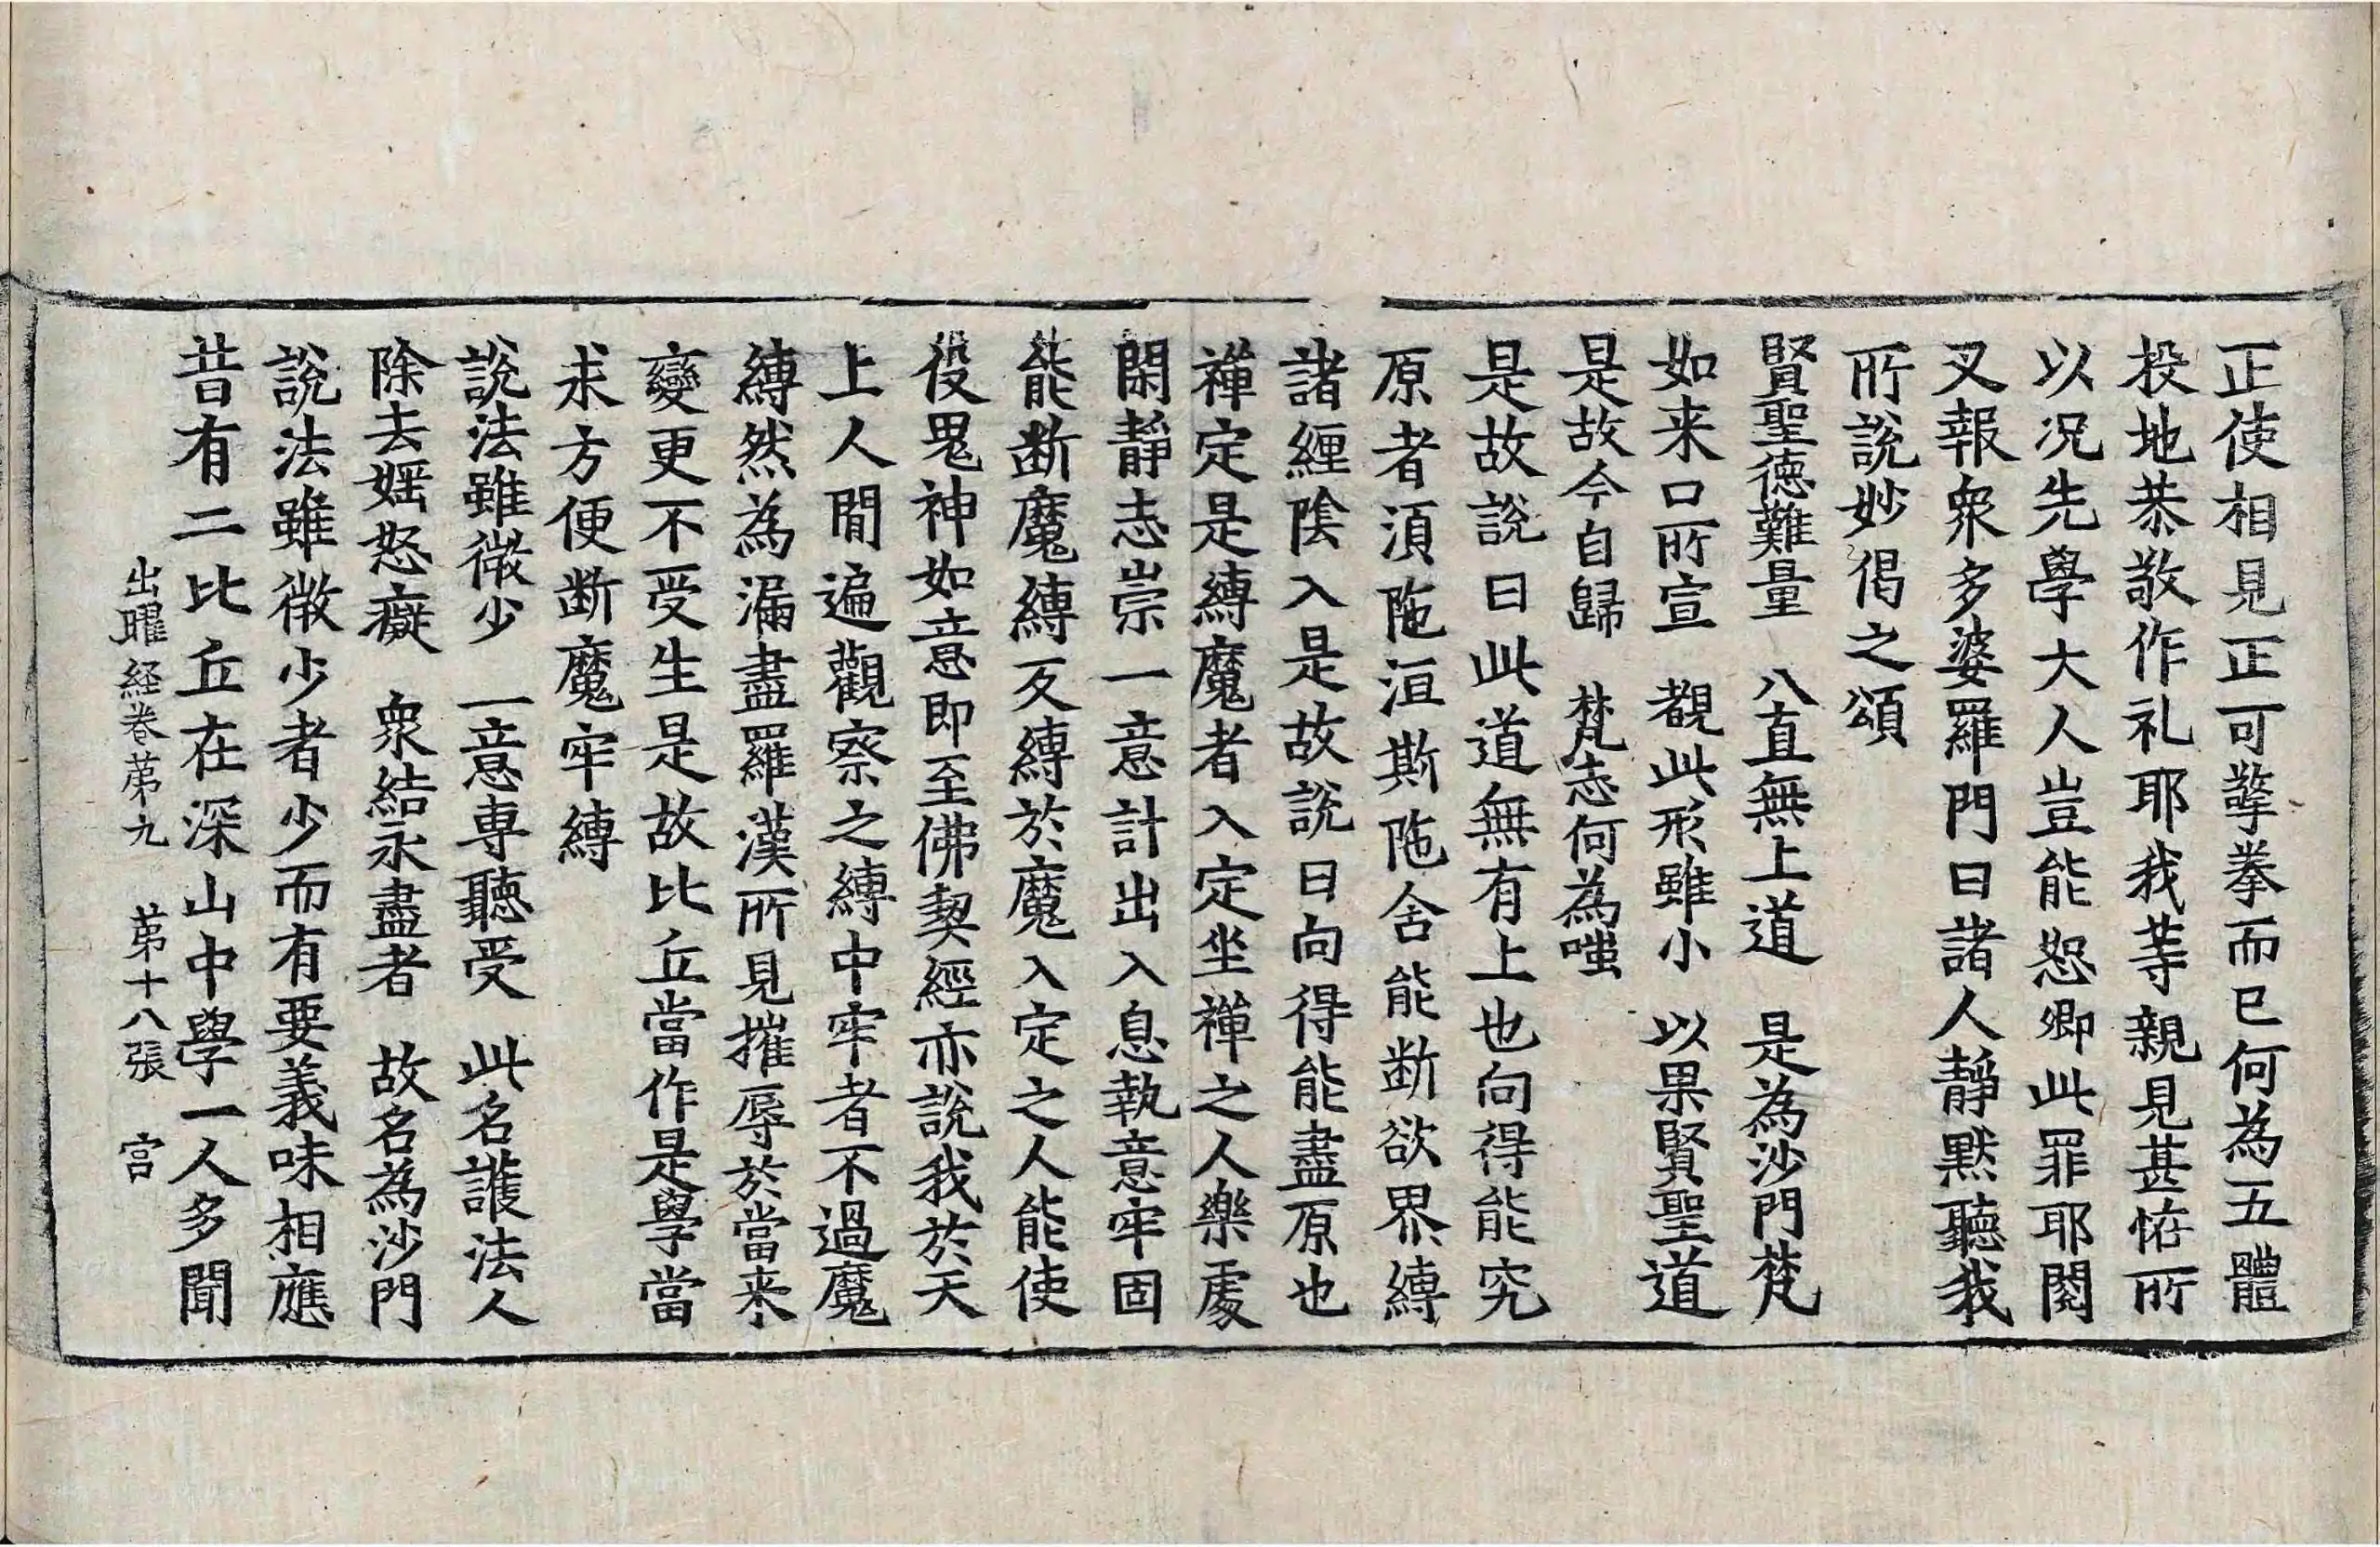 正使相見正可擎拳而已何為五體
投地恭敬作礼耶我等親見甚恠所
以况先學大人豈能恕卿此罪耶閱
叉報衆多婆羅門曰諸人靜默聽我
所說妙偈之頌
賢聖德難量　八直無上道　是為沙門梵
如来口所宣　覩此形雖小　以果賢聖道
是故今自歸　梵志何為嗤
是故說曰此道無有上也向得能究
原者須陁洹斯陁含能断欲界縛
諸纏陰入是故說曰向得能盡原也
禪定是縛魔者入定坐禪之人樂處
閑靜志崇一意計出入息執意牢固
能断魔縛反縛於魔入定之人能使
役鬼神如意即至佛契經亦說我於天
上人間遍觀察之縛中牢者不過魔
縛然為漏盡羅漢所見摧辱於當来
變更不受生是故比丘當作是學當
求方便断魔牢縛
說法雖微少　一意専聽受　此名護法人
除去婬怒癡　衆結永盡者　故名為沙門
說法雖微少者少而有要義味相應
昔有二比丘在深山中學一人多聞
出曜経卷苐九　苐十八張　宫